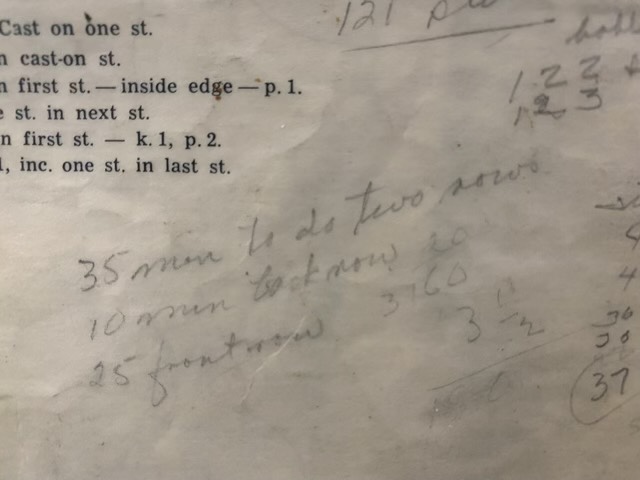 Cast on one st.
n cast-on st.
n first st. — inside edge — p. 1.
e st. in next st.
n first st. — k. 1, p. 2.
1, inc. one st. in last st.
121
122
123
35 min to do two rows
10 min back row
25 front row
3 1/2
4
30
30
37